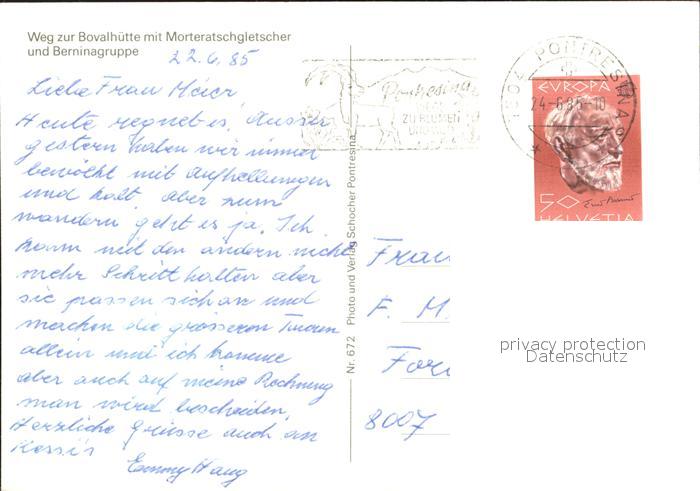 Weg zur Bovalhütte mit Morteratschgletscher
und Berninagruppe
22.6.85
Liebe Frau Meier
Heute regnet es, Ausser
gestern haben wir immer
bewölkt mit Aufhellungen
und kalt, aber zum
wandern geht es ja. Ich
kann mit den andern nicht
mehr Schritt halten aber
sie passen sich an und
machen die grösseren Touren
allein und ich komme
aber auch auf meine Rechnung
man wird bescheiden,
Herzliche Grüsse auch an
Emmy Haug
Nr. 672 Photo und Verlag Schocher Pontresina
Pontresina
ZU BLUMEN
7504 PONTRESINA
24-6.85-10
EUROPA
50
HELVETIA
Frau
F. M.
8007
privacy protection
Datenschutz